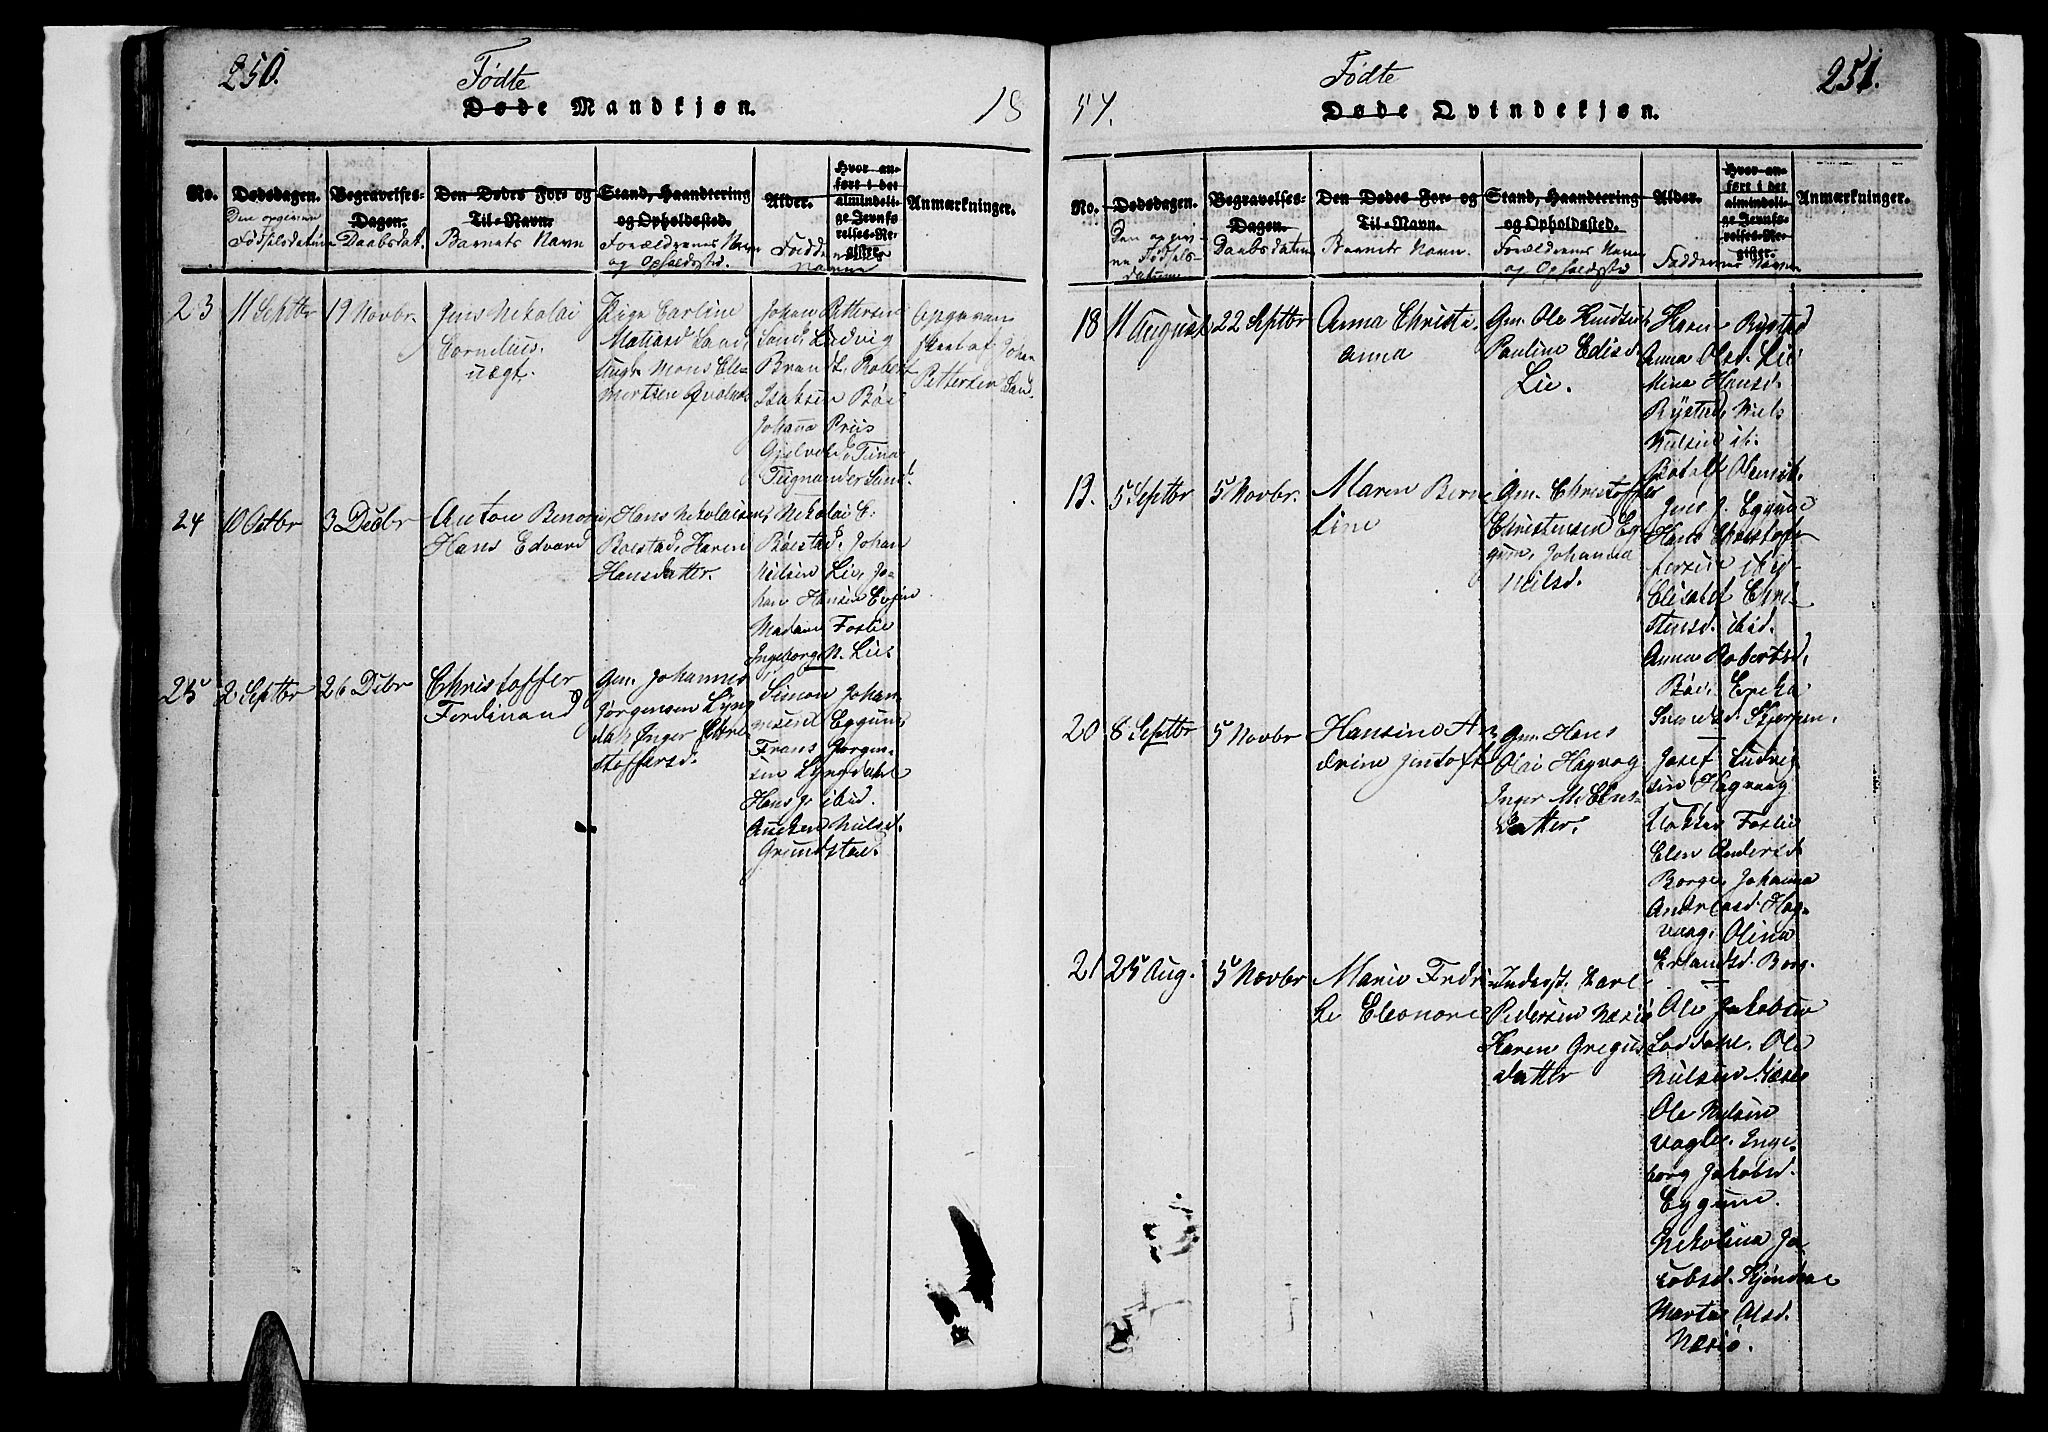 250.
Fødte
Døde Mandkjøn.
18
No.
Dødsdagen.
Den opgivne
Fødselsdatum
Begravelses-
Dagen.
Daabsdat.
Den Dødes For- og
Til-Navn.
Barnets Navn
Stand, Haandtering
og Opholdssted.
Forældrenes Navn
og Opholdssted.
Alder.
Faddernes
Navne
Hvor an-
ført i det
almindeli-
ge Jevnfø-
relses-Re-
gister.
Anmærkninger.
23
11 Septbr
19 Novbr.
Jens Nikolai
Cornelius.
uægt.
Pige Carline
Sand,
Ungk. Mons
Johan Pettersen
Sand, Ludvig
Brandt, Robert
Isaksen Böe
Johanna Priis
Sund.
Opgaven
skeet af Johan
Pettersen Sand.
24
10 Octbr
3 Decbr
Anton Benoni
Hans Edvard
Hans Nikolaisen
Bolstad, Karen
Hansdatter.
Nikolai E.
Bolstad, Johan
Nilsen Lie, Jo-
han Hansen Evjen
Madam Foslie
Ingeborg N. Lie.
25
2 Septbr
26 Dcbr
Christoffer
Ferdinand
Gm. Johannes
Jörgensen Lyng
dal, Inger Chri
stoffersd.
Simon Johan-
nesen Eggum
Frans Jörgen-
sen Lyngdahl
Hans J. ibid.
Grundstad.
251.
Fødte
Døde Qvindekjøn.
57.
No.
Dødsdagen.
Den opgiv-
ne Fødsels-
datum
Begravelses-
Dagen.
Daabsdatum
Den Dødes For- og
Til-Navn.
Barnets Navn.
Stand, Haandtering
og Opholdssted.
Forældrenes Navn
og Opholdssted
Alder.
Faddernes Navne
Hvor an-
ført i det
almindeli-
ge Jevnfø-
relses-Re-
gister.
Anmærkninger.
18
11 August
22 Septbr
Anna Christi-
anna
Gm. Ole Knudsen
Pauline Edisd.
Lie.
Hans Rysted
Anna Olsd. Lie
Mina Hansd.
Rysted, Niels
Nilsen ib.
19.
5 Septbr
5 Novbr.
Maren Bern
tine
Gm. Christoffer
Christensen Eg-
gum, Johanna
Nilsd.
Jens J. Eggum
Hans Christof-
fersen ibid
Elisabet Chri-
stensd. ibid.
Anna Robertsd.
Böe, Ericka
20
8 Septbr
5 Novbr
Hansine An
drine Jentoft
Gm. Hans
Olai Hagvag
Inger M. Elias
datter.
Josef Ludvig
sen Hagvaag
Foslie
Elen Andersd.
Borge, Johanna
Andreasd. Hag-
vaag, Olina
Erlandsd. Borg.
21
25 Aug.
5 Novbr
Marie Fredri-
ke Eleonore
Inderst. Karl
Pedersen Næsie
Karen Gregus
datter
Ole Jakobsen
Loddahl. Ole
Nilsen Næsie
Ole Nilsen
Vagle. Inge-
borg Jakobsd.
Eggum.
Nekolina Ja-
cobsd.
Marta Olsd.